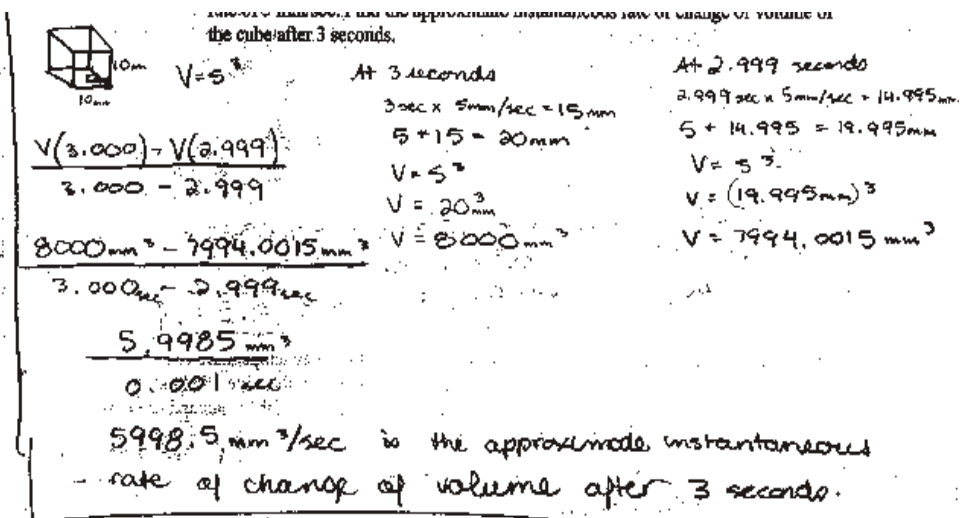 the cube after 3 seconds.
10mm
10mm
V=s³
V(3.000) - V(2.999)
3.000 - 2.999
8000mm³ - 7994.0015mm³
3.000sec - 2.999sec
5.9985 mm³
0.001 sec
At 3 seconds
3sec x 5mm/sec = 15mm
5 + 15 = 20mm
V = s³
V = 20³mm
V = 8000mm³
At 2.999 seconds
2.999sec x 5mm/sec = 14.995mm
5 + 14.995 = 19.995mm
V = s³
V = (19.995mm)³
V = 7994.0015 mm³
5998.5 mm³/sec is the approximate instantaneous
rate of change of volume after 3 seconds.